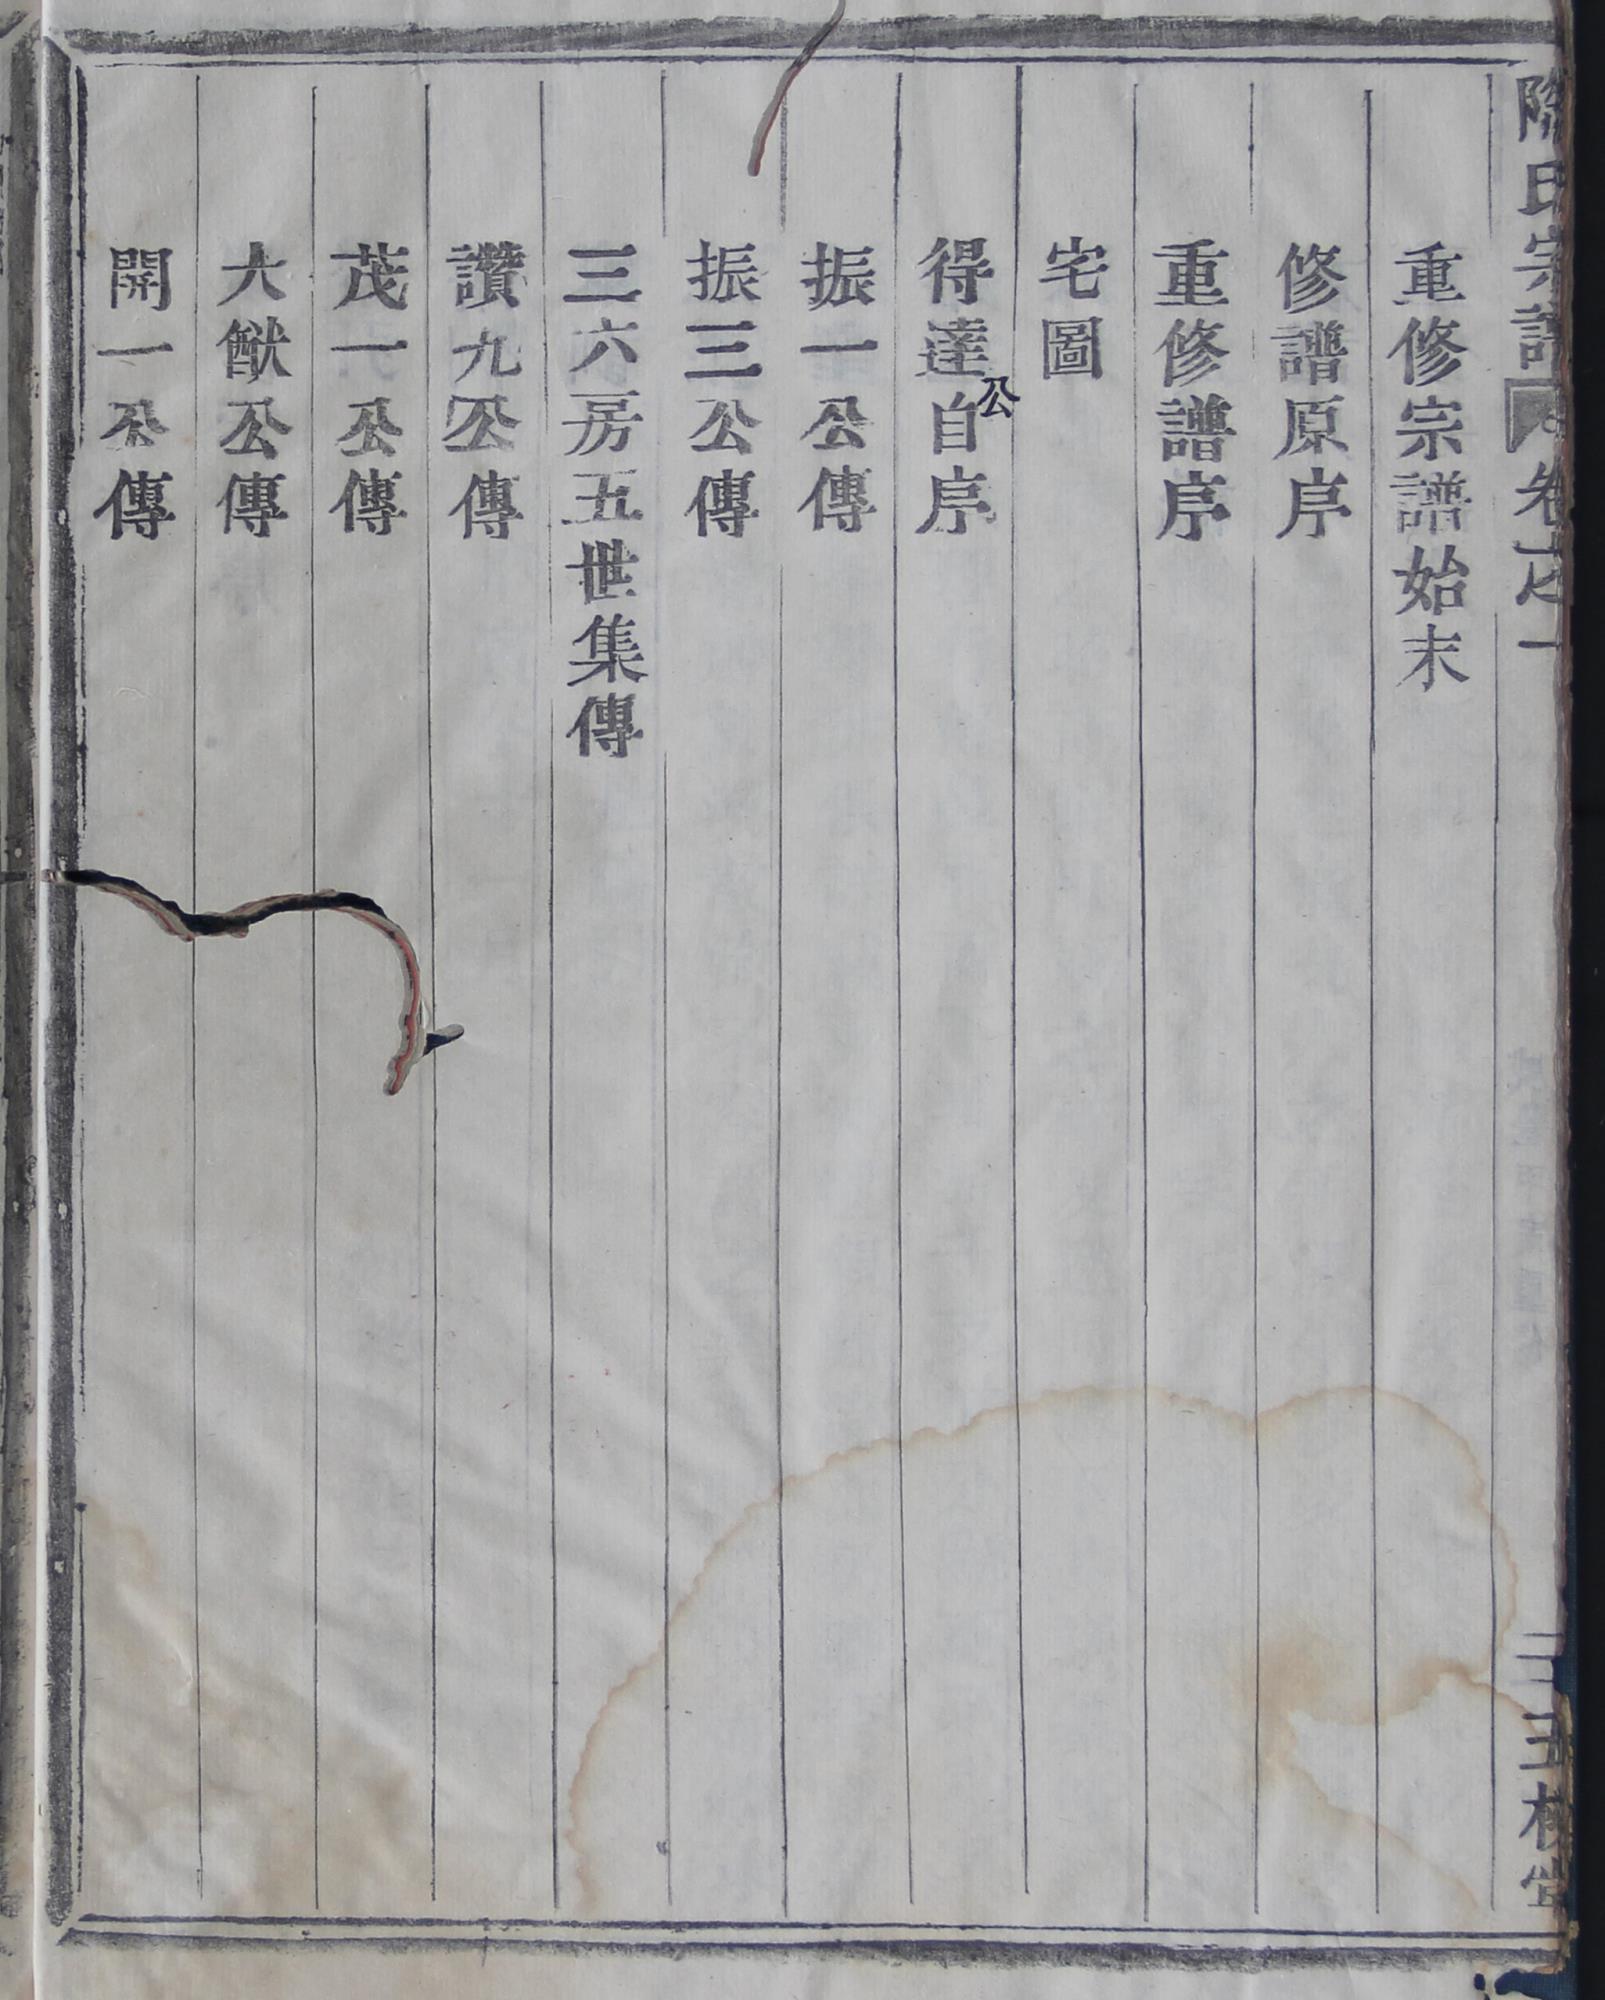 陶氏宗譜 卷之一 二 五桂堂
重修宗譜始末
修譜原序
重修譜序
宅圖
得達公自序
振一公傳
振三公傳
三六房五世集傳
讚九公傳
茂一公傳
大猷公傳
開一公傳